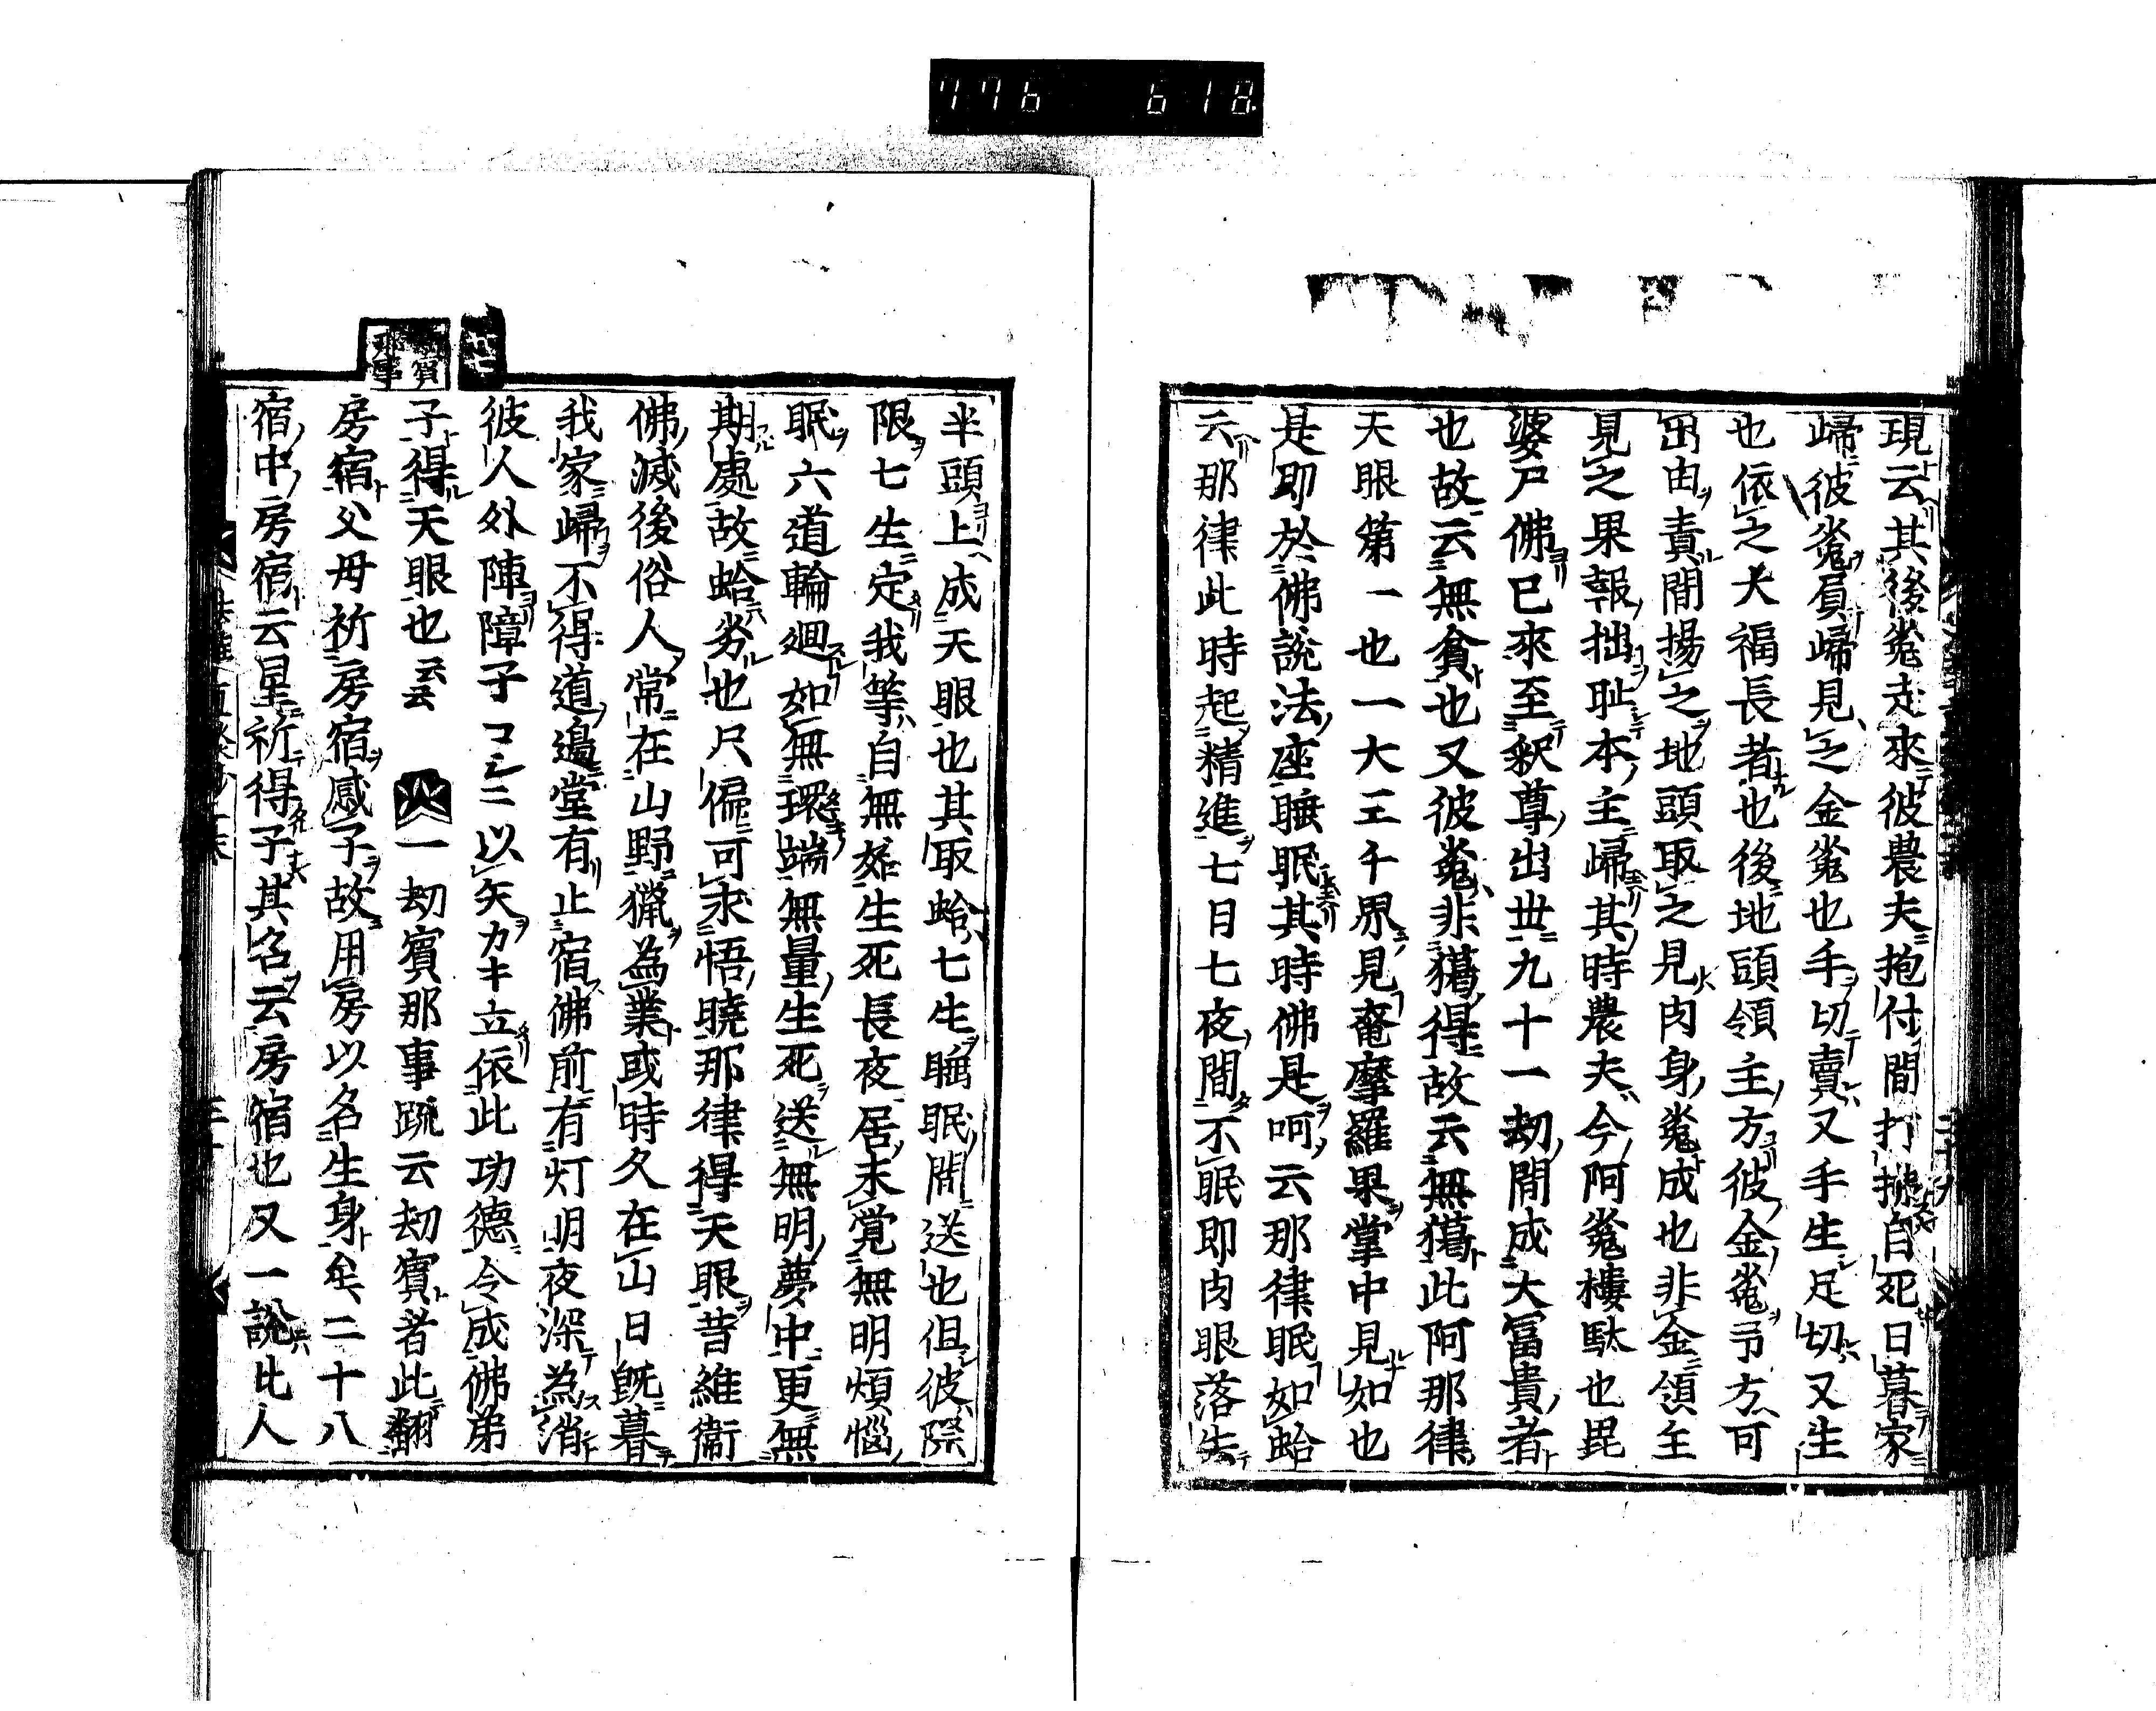 776 618
現云其後菟走來彼農夫抱付間打捨自死日暮家
歸彼菟負歸見之金菟也手切賣又手生足切又生
也依之大福長者也後地頭領主方彼金菟弓方可
出由責間揚之地頭取之見肉身菟成也非金領主
見之果報拙耻本主歸其時農夫今阿菟樓駄也毘
婆尸佛已來至釈尊出世九十一劫間成大冨貴者
也故云無貧也又彼菟非獦得故云無獦此阿那律
天眼第一也一大三千界見菴摩羅果掌中見如也
是即於佛說法座睡眠其時佛是呵云那律眠如蛤
云那律此時起精進七日七夜間不眠即肉眼落失
半頭上成天眼也其取蛤七生睡眠間送也但彼際
限七生定我等自無始生死長夜居未覚無明煩惱
眠六道輪廻如無環端無量生死送無明夢中更無
期處故蛤劣也尺偏可求悟曉那律得天眼昔維衞
佛滅後俗人常在山野猟為業或時久在山日既暮
我家歸不得道邊堂有止宿佛前有灯明夜深為消
彼人外陣障子コシニ以矢カキ立依此功德令成佛弟
子得天眼也云云 一劫賓那事䟽云劫賓者此翻
房宿父母祈房宿感子故用房以名生身矣二十八
宿中房宿云星祈得子其名云房宿也又一說此人
賓
那事